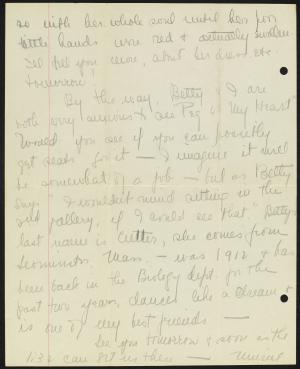 so with her whole soul until her poor
little hands were red & actually swollen.
I'll tell you more, about her dress etc.
tomorrow.
By the way, Betty & I are
both very anxious to see Peg o' My Heart
Would you see if you can possibly
get seats for it — I imagine it will
be somewhat of a job — but as Betty
says "I wouldn't mind sitting in the
2nd gallery, if I could see that." Betty's
last name is Cutter, she comes from
Leominster, Mass. — was 1912 & has
been back in the Biology dept. for the
past two years, dances like a dream &
is one of my best friends —
See you tomorrow as soon as the
1:32 can get us there —